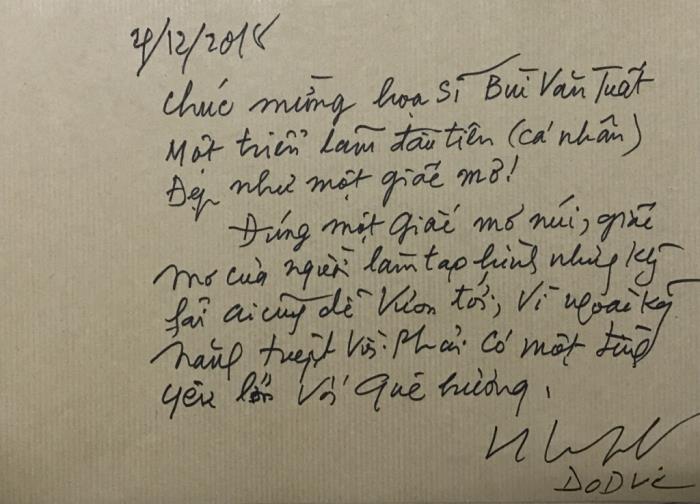 /12/2018
Chúc mừng họa sĩ Bùi Văn Tuất
Một triển lãm đầu tiên (cá nhân)
Đẹp như một giấc mơ!
Đúng một giấc mơ núi, giấc
mơ của người làm tạp hình nhưng kg
fải ai cũng dễ vươn tới, vì ngoài kỹ
năng tuyệt vời phải có một tình
yêu lớn với quê hương.